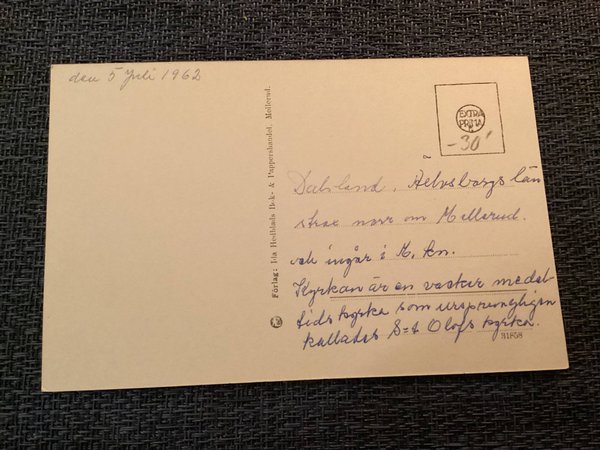 den 5 Juli 1962
EXTRA
PRIMA
-30'
Dalsland, Älvsborgs län
strax norr om Mellerud.
och ingår i M. kn.
Kyrkan är en vacker medel-
tidskyrka som ursprungligen
kallades S:t Olofs kyrka.
Förlag: Ida Hedblads Bok- & Pappershandel, Mellerud.